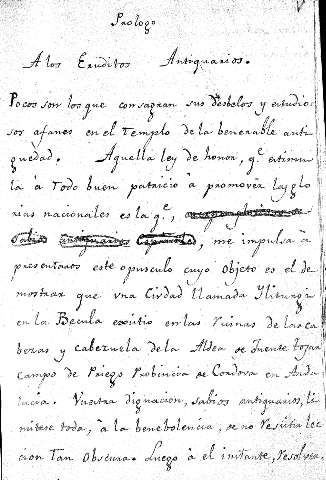 Prologo
A los Eruditos Antiguarios.
Pocos son los que consagran sus desbelos y estudio-
sos afanes en el Templo de la benerable anti-
guedad. Aquella ley de honor, q.e estimu-
la à Todo buen patricio à promover las glo-
rias nacionales es la q.e,
Sabios antiguarios Españoles, me impulsa à
presentaros este opusculo cuyo objeto es el de
mostrar que una Ciudad llamada Yliturgi
en la Becula existio en las Ruinas de las ca
bezas y cabezuela de la Aldea de Fuente tojar
campo de Priego Probincia de Cordova en Anda
lucia. Vuestra dignacion, sabios antiguarios, li
mitese toda, à la benebolencia, se no resista lec
cion Tan obscura. Luego à el instante, resolver